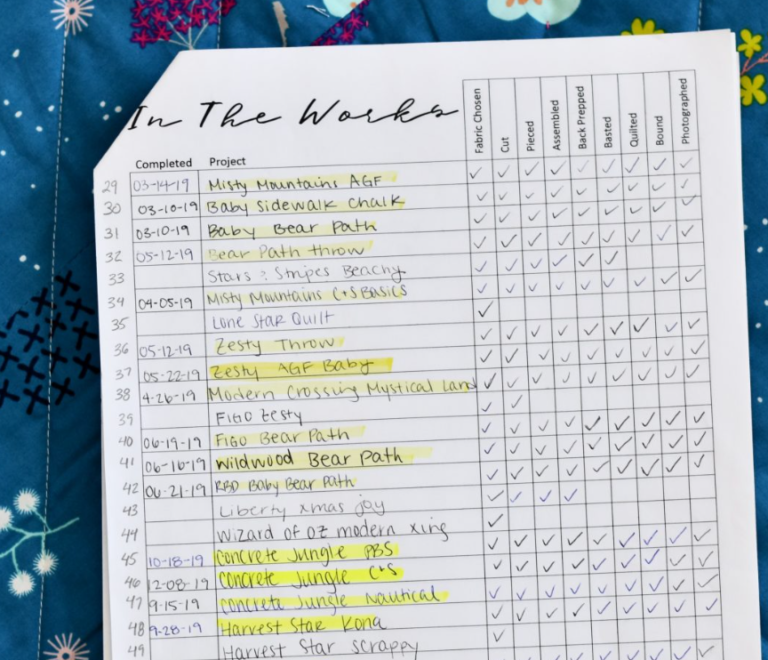 In The Works
Completed Project Fabric Chosen Cut Pieced Assembled Back Prepped Basted Quilted Bound Photographed
29 03-14-19 Misty Mountains AGF
30 03-10-19 Baby Sidewalk Chalk
31 03-10-19 Baby Bear Path
32 05-12-19 Bear Path throw
33 Stars & Stripes Beachy
34 04-05-19 Misty Mountains C+S Basics
35 Lone Star Quilt
36 05-12-19 Zesty Throw
37 05-22-19 Zesty AGF Baby
38 4-26-19 Modern Crossing Mystical Land
39 FIGO Zesty
40 06-19-19 FIGO Bear Path
41 06-16-19 Wildwood Bear Path
42 06-21-19 RBD Baby Bear Path
43 Liberty xmas joy
44 Wizard of OZ modern xing
45 10-18-19 Concrete Jungle PBS
46 12-08-19 Concrete Jungle C+S
47 9-15-19 Concrete Jungle Nautical
48 9-28-19 Harvest Star Kona
49 Harvest Star scrappy